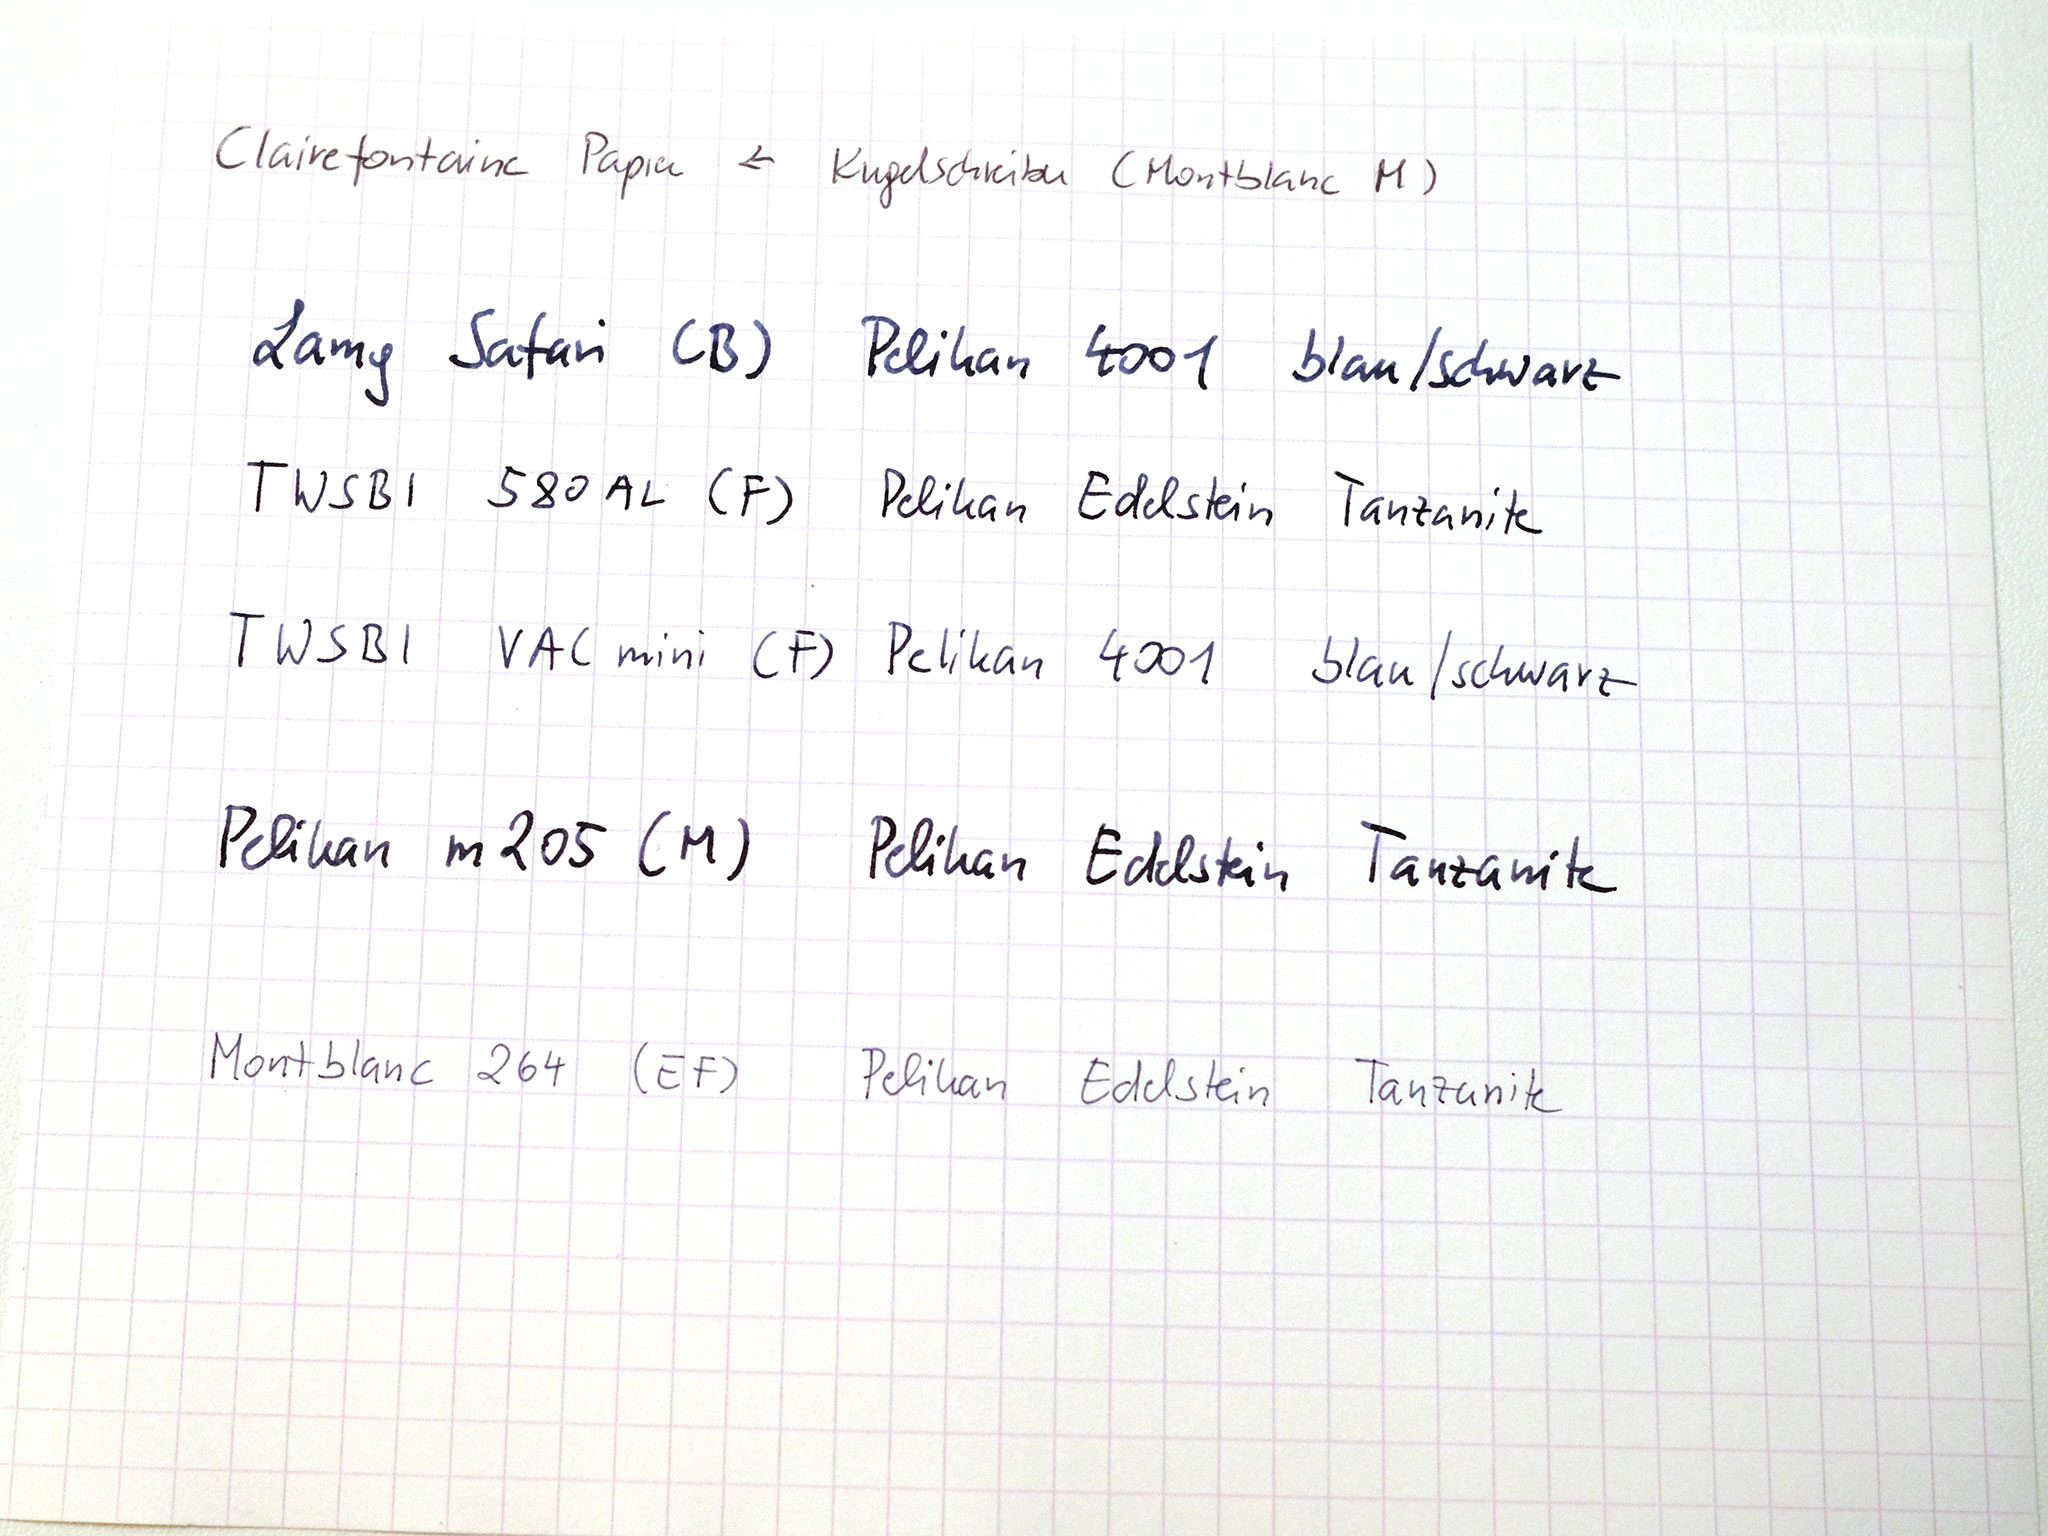 Clairefontaine Papier ← Kugelschreiber (Montblanc M)
Lamy Safari (B) Pelikan 4001 blau/schwarz
TWSBI 580AL (F) Pelikan Edelstein Tanzanite
TWSBI VAC mini (F) Pelikan 4001 blau/schwarz
Pelikan m205 (M) Pelikan Edelstein Tanzanite
Montblanc 264 (EF) Pelikan Edelstein Tanzanite